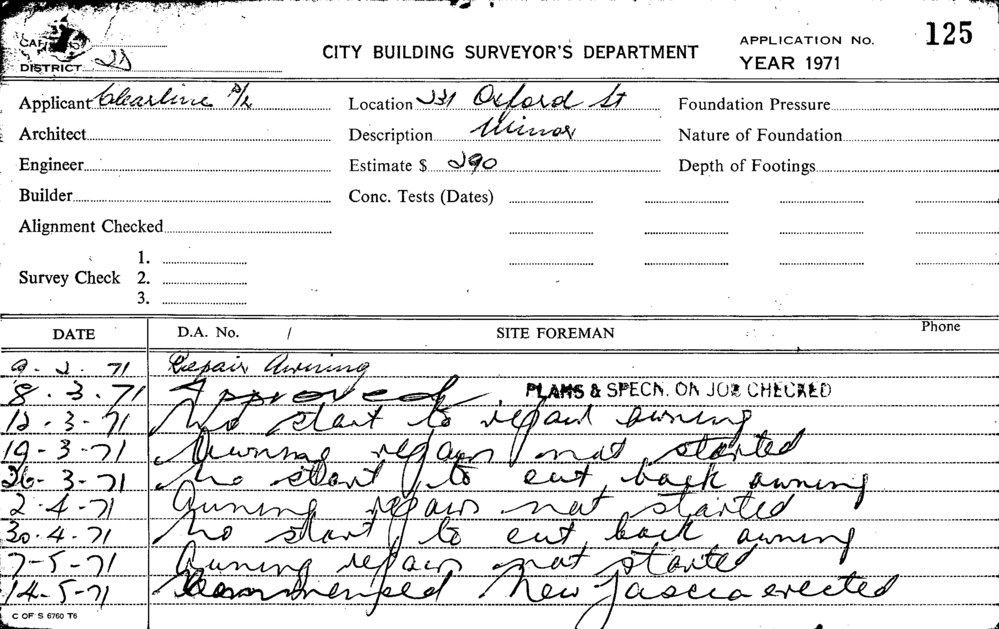 CITY BUILDING SURVEYOR'S DEPARTMENT
APPLICATION No. 125
YEAR 1971
DISTRICT 2D
Applicant Clearline P/L
Location 231 Oxford St
Foundation Pressure
Architect
Description Minor
Nature of Foundation
Engineer
Estimate $ 290
Depth of Footings
Builder
Conc. Tests (Dates)
Alignment Checked
Survey Check 1.
2.
3.
DATE D.A. No. / SITE FOREMAN Phone
9. 2. 71 Repair Awning
8. 3. 71 Approved PLANS & SPECN. ON JOB CHECKED
12-3-71 No start to repair awning
19-3-71 Awning repairs not started
26-3-71 No start to cut back awning
2-4-71 Awning repairs not started
30.4.71 No start to cut back awning
7-5-71 Awning repairs not started
14-5-71 Commenced New fascia erected
C OF S 6760 T6